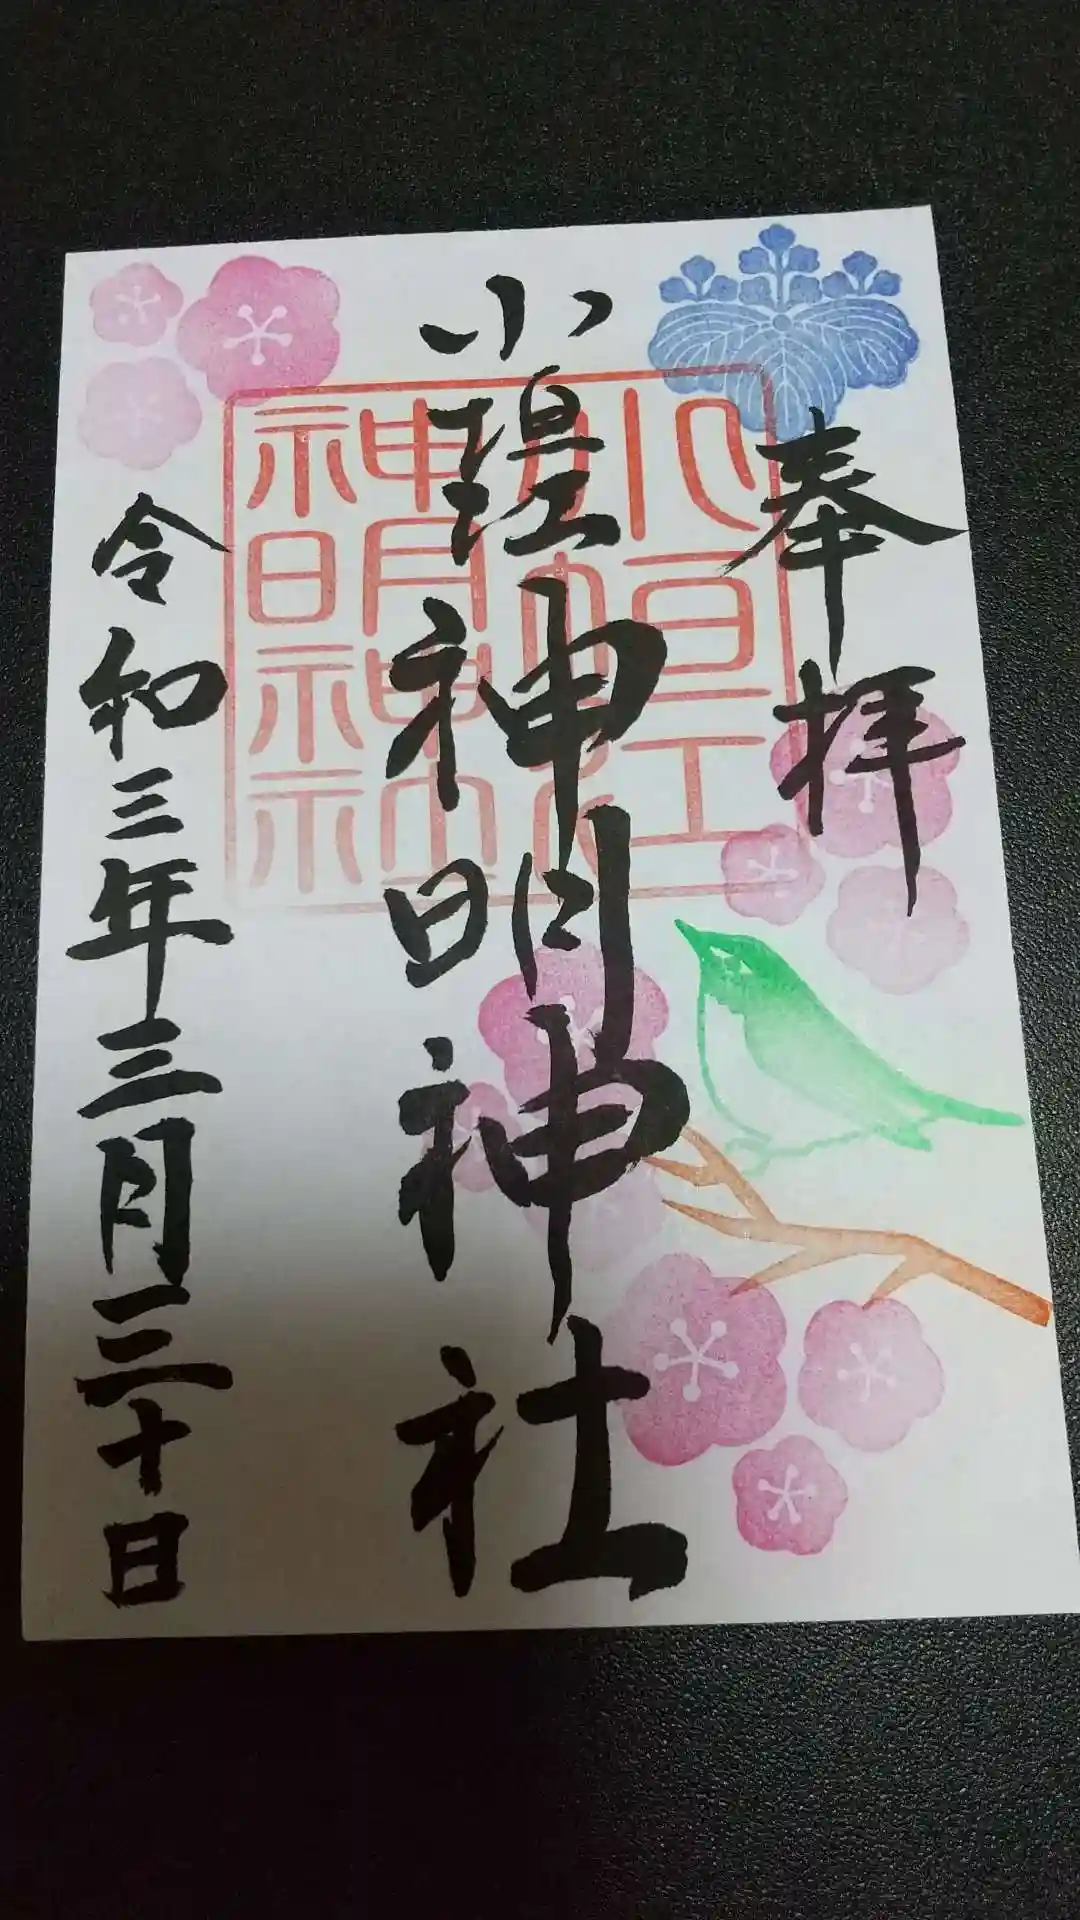 奉拝
小垣江神明神社
小垣江
神明神社
令和三年三月三十日